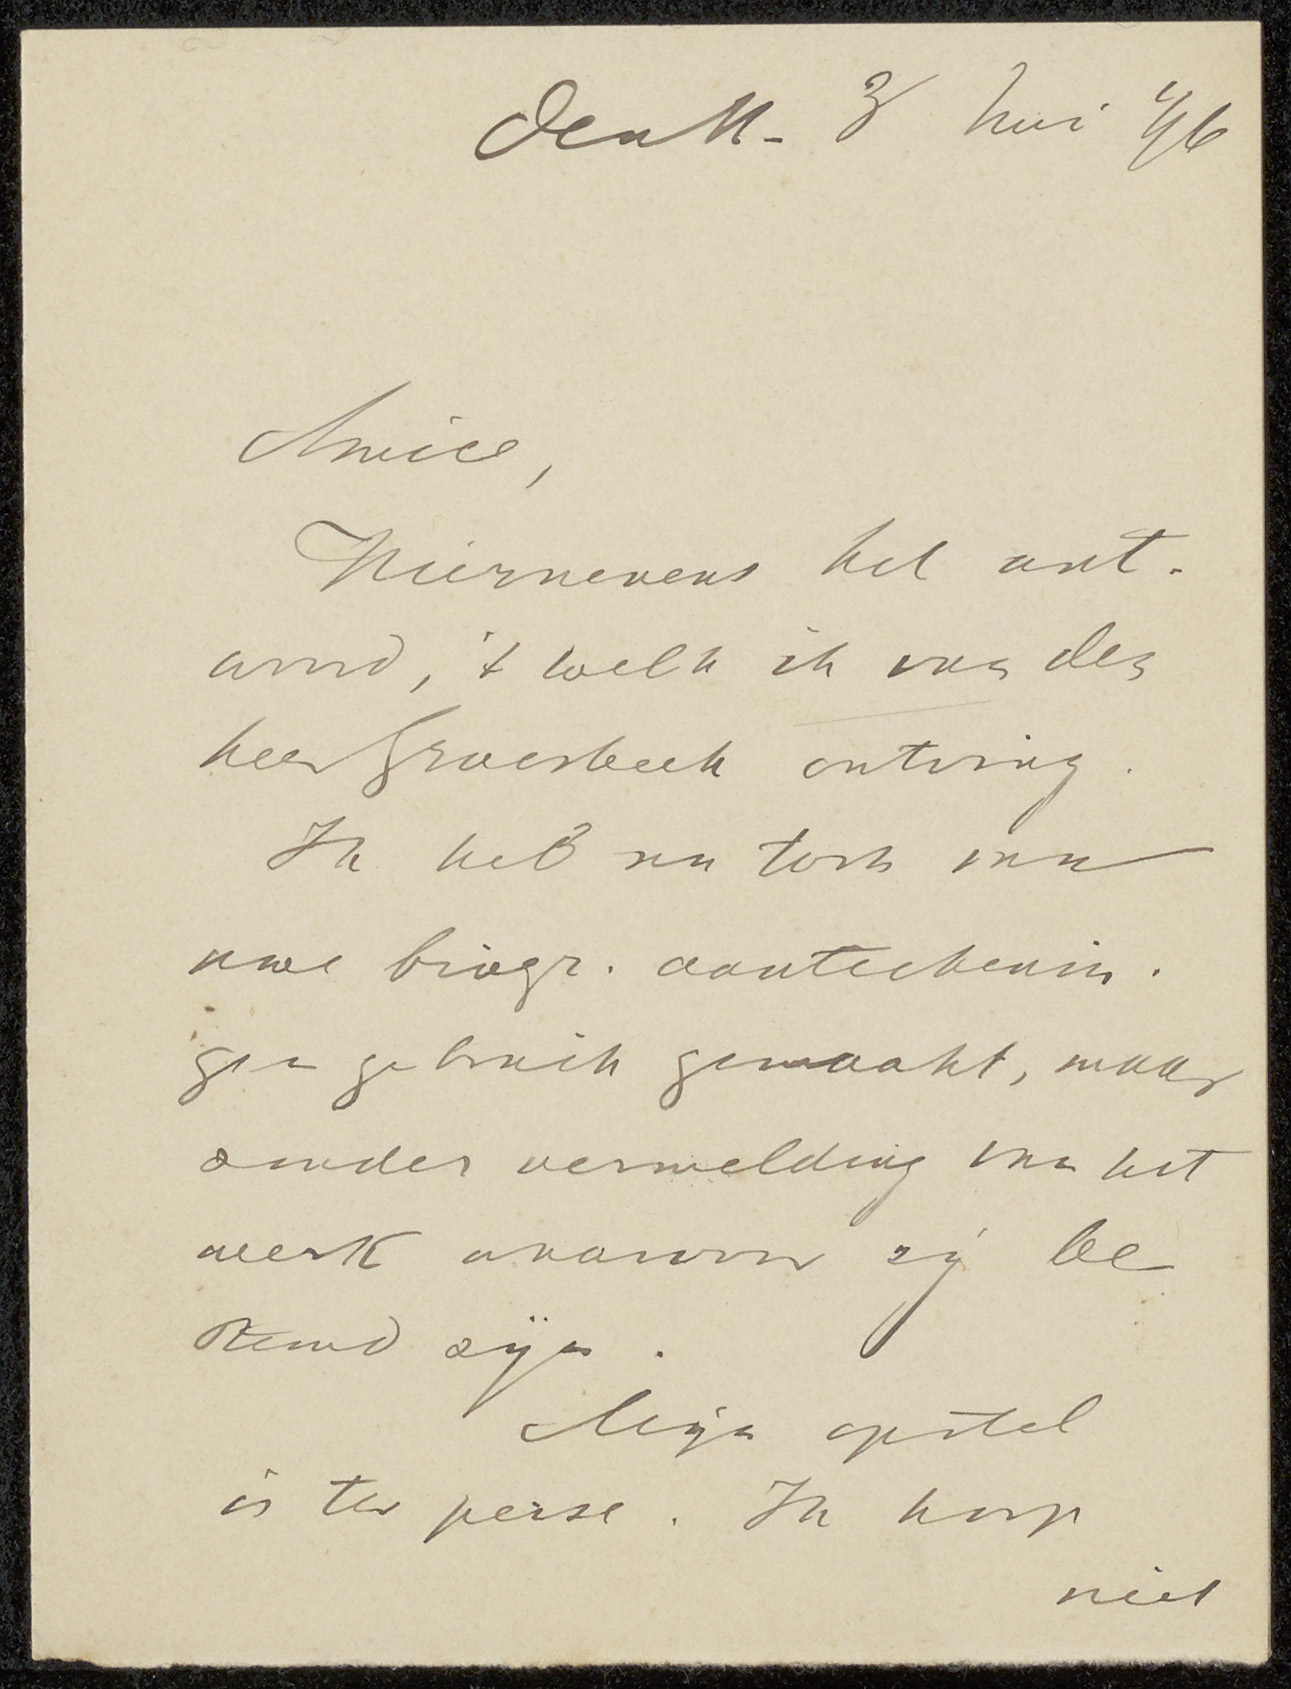 den H. 3 Mei '96
Amice,
Hiernevens het ant-
woord, 't welk ik van den
heer Groesbeek ontving.
Ik heb nu toch van
uwe biogr. aanteekenin-
gen gebruik gemaakt, maar
zonder vermelding van het
werk waarvoor zij be
stemd zijn.
Mijn opstel
is ter perse. Ik hoop
niet